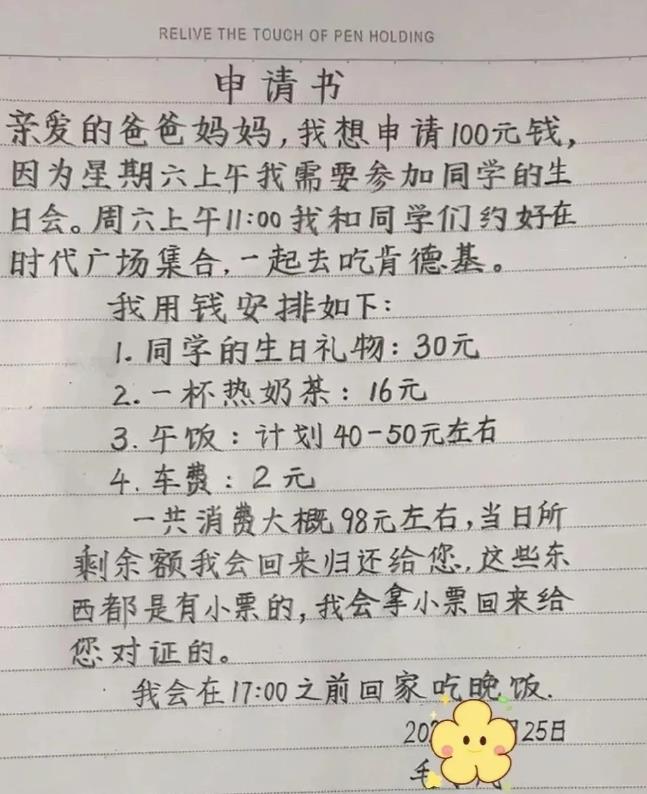 RELIVE THE TOUCH OF PEN HOLDING
申请书
亲爱的爸爸妈妈,我想申请100元钱,
因为星期六上午我需要参加同学的生
日会。周六上午11:00我和同学们约好在
时代广场集合,一起去吃肯德基。
我用钱安排如下:
1.同学的生日礼物:30元
2.一杯热奶茶:16元
3.午饭:计划40-50元左右
4.车费:2元
一共消费大概98元左右,当日所
剩余额我会回来归还给您,这些东
西都是有小票的,我会拿小票回来给
您对证的。
我会在17:00之前回家吃晚饭.
25日